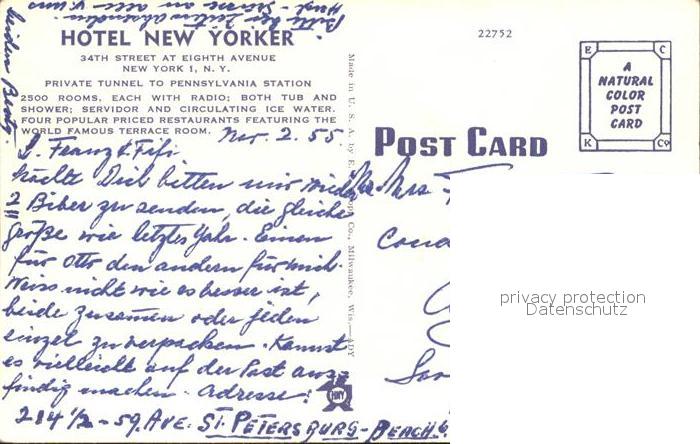 HOTEL NEW YORKER
34TH STREET AT EIGHTH AVENUE
NEW YORK 1, N. Y.
PRIVATE TUNNEL TO PENNSYLVANIA STATION
2500 ROOMS, EACH WITH RADIO; BOTH TUB AND
SHOWER; SERVIDOR AND CIRCULATING ICE WATER.
FOUR POPULAR PRICED RESTAURANTS FEATURING THE
WORLD FAMOUS TERRACE ROOM.
Nov. 2. 55.
L. Franz & Fifi
Möchte Dich bitten mir wieder
2 Biber zu senden, die gleiche
größe wie letztes Jahr. Einen
für Otto den andern für mich.
Weiss nicht wie es besser ist,
beide zusammen oder jeden
einzel zu verpacken. Kannst
es vielleicht auf der Post aus=
findig machen. Adresse:
284 1/2 - 59. AVE. ST. PETERSBURG - BEACH. 6.
Bitte
an alle
Made in U. S. A. by E. C. Kropp Co., Milwaukee, Wis.
22752
E C
A
NATURAL
COLOR
POST
CARD
K Co
POST CARD
Mr. Mrs
privacy protection
Datenschutz